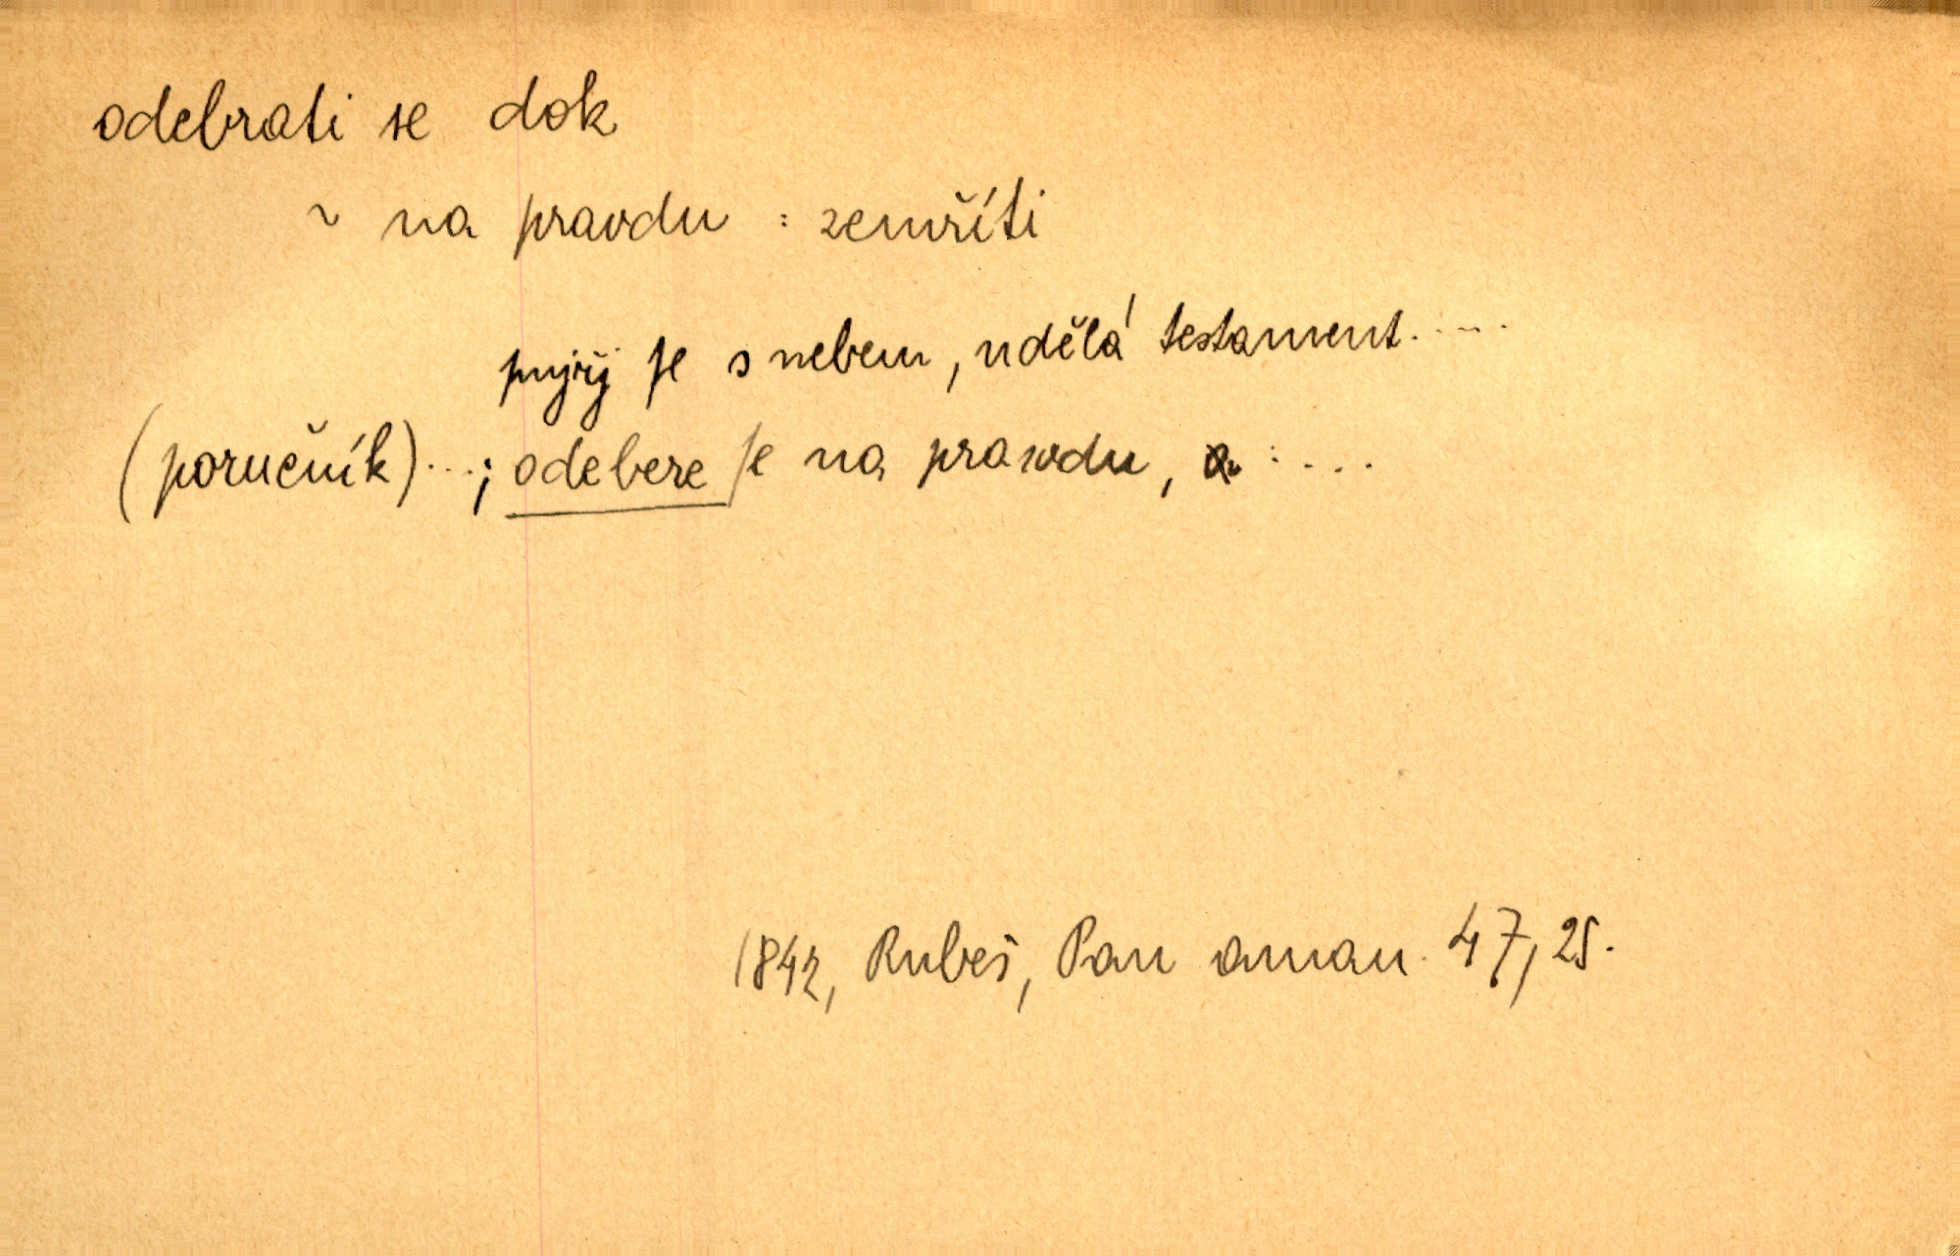 odebrati se dok
~ na pravdu : zemříti
se s nebem, udělá testament.....
(poručník)....; odebere se na prawdu, a .....
1842, Rubeš, Pan aman. 47, 25.